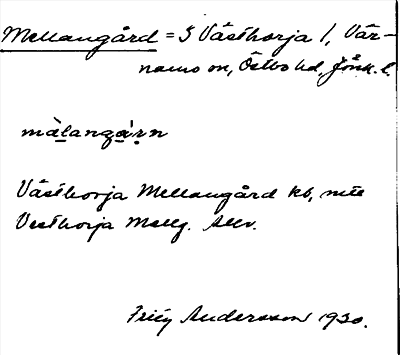 Mellangård = 5 Västhorja 1, Vär-
namo sn, Östbo hd, Jönk. l.
mälangạ̊rn
Västhorja Mellangård kb,
Vesthorja Mellg.
Andersson 1930.